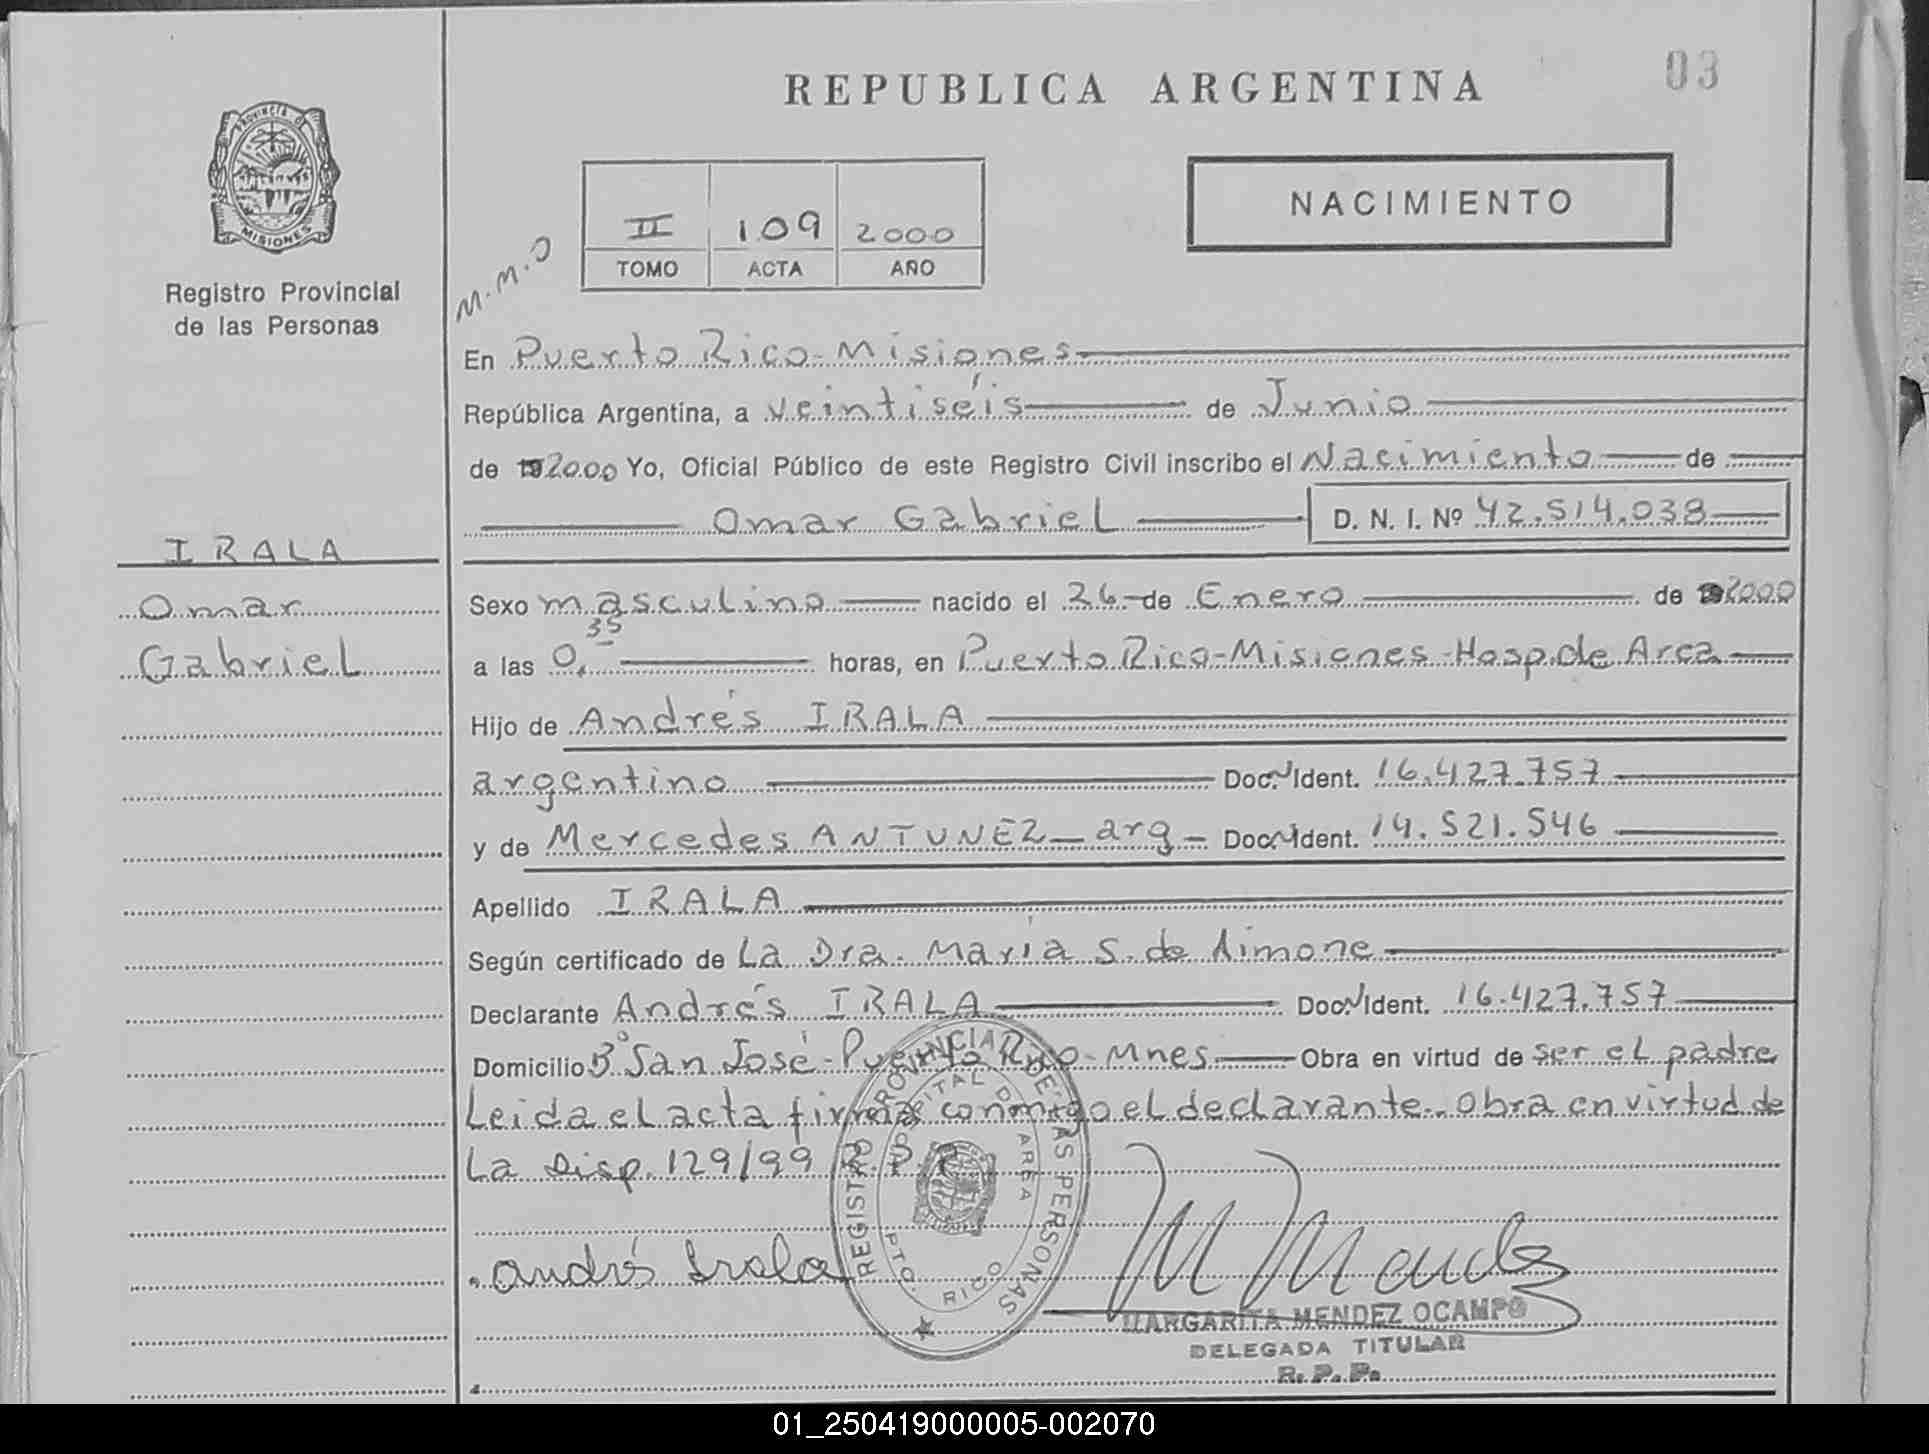 REPUBLICA ARGENTINA
03
PROVINCIA DE
MISIONES
Registro Provincial
de las Personas
II 109 2000
TOMO ACTA AÑO
NACIMIENTO
M.M.O
En Puerto Rico-Misiones
República Argentina, a veintiséis de Junio
de 2000 Yo, Oficial Público de este Registro Civil inscribo el Nacimiento de
Omar Gabriel D. N. I. Nº 42.514.038
IRALA
Omar
Gabriel
Sexo masculino nacido el 26 de Enero de 2000
a las 0,35 horas, en Puerto Rico-Misiones-Hosp.de Area
Hijo de Andrés IRALA
argentino Doc. Ident. 16.427.757
y de Mercedes ANTUNEZ arg Doc. Ident. 14.521.546
Apellido IRALA
Según certificado de La Dra. María S. de Aimone
Declarante Andrés IRALA Doc. Ident. 16.427.757
Domicilio Bº San José-Puerto Rico-Mnes. Obra en virtud de ser el padre
Leida el acta firma conmigo el declarante. Obra en virtud de
La Disp. 129/99
REGISTRO PROVINCIAL DE LAS PERSONAS
HOSPITAL DE AREA
PTO. RICO
Andrés Irala
M Mendez
MARGARITA MENDEZ OCAMPO
DELEGADA TITULAR
R. P. P.
01_250419000005-002070